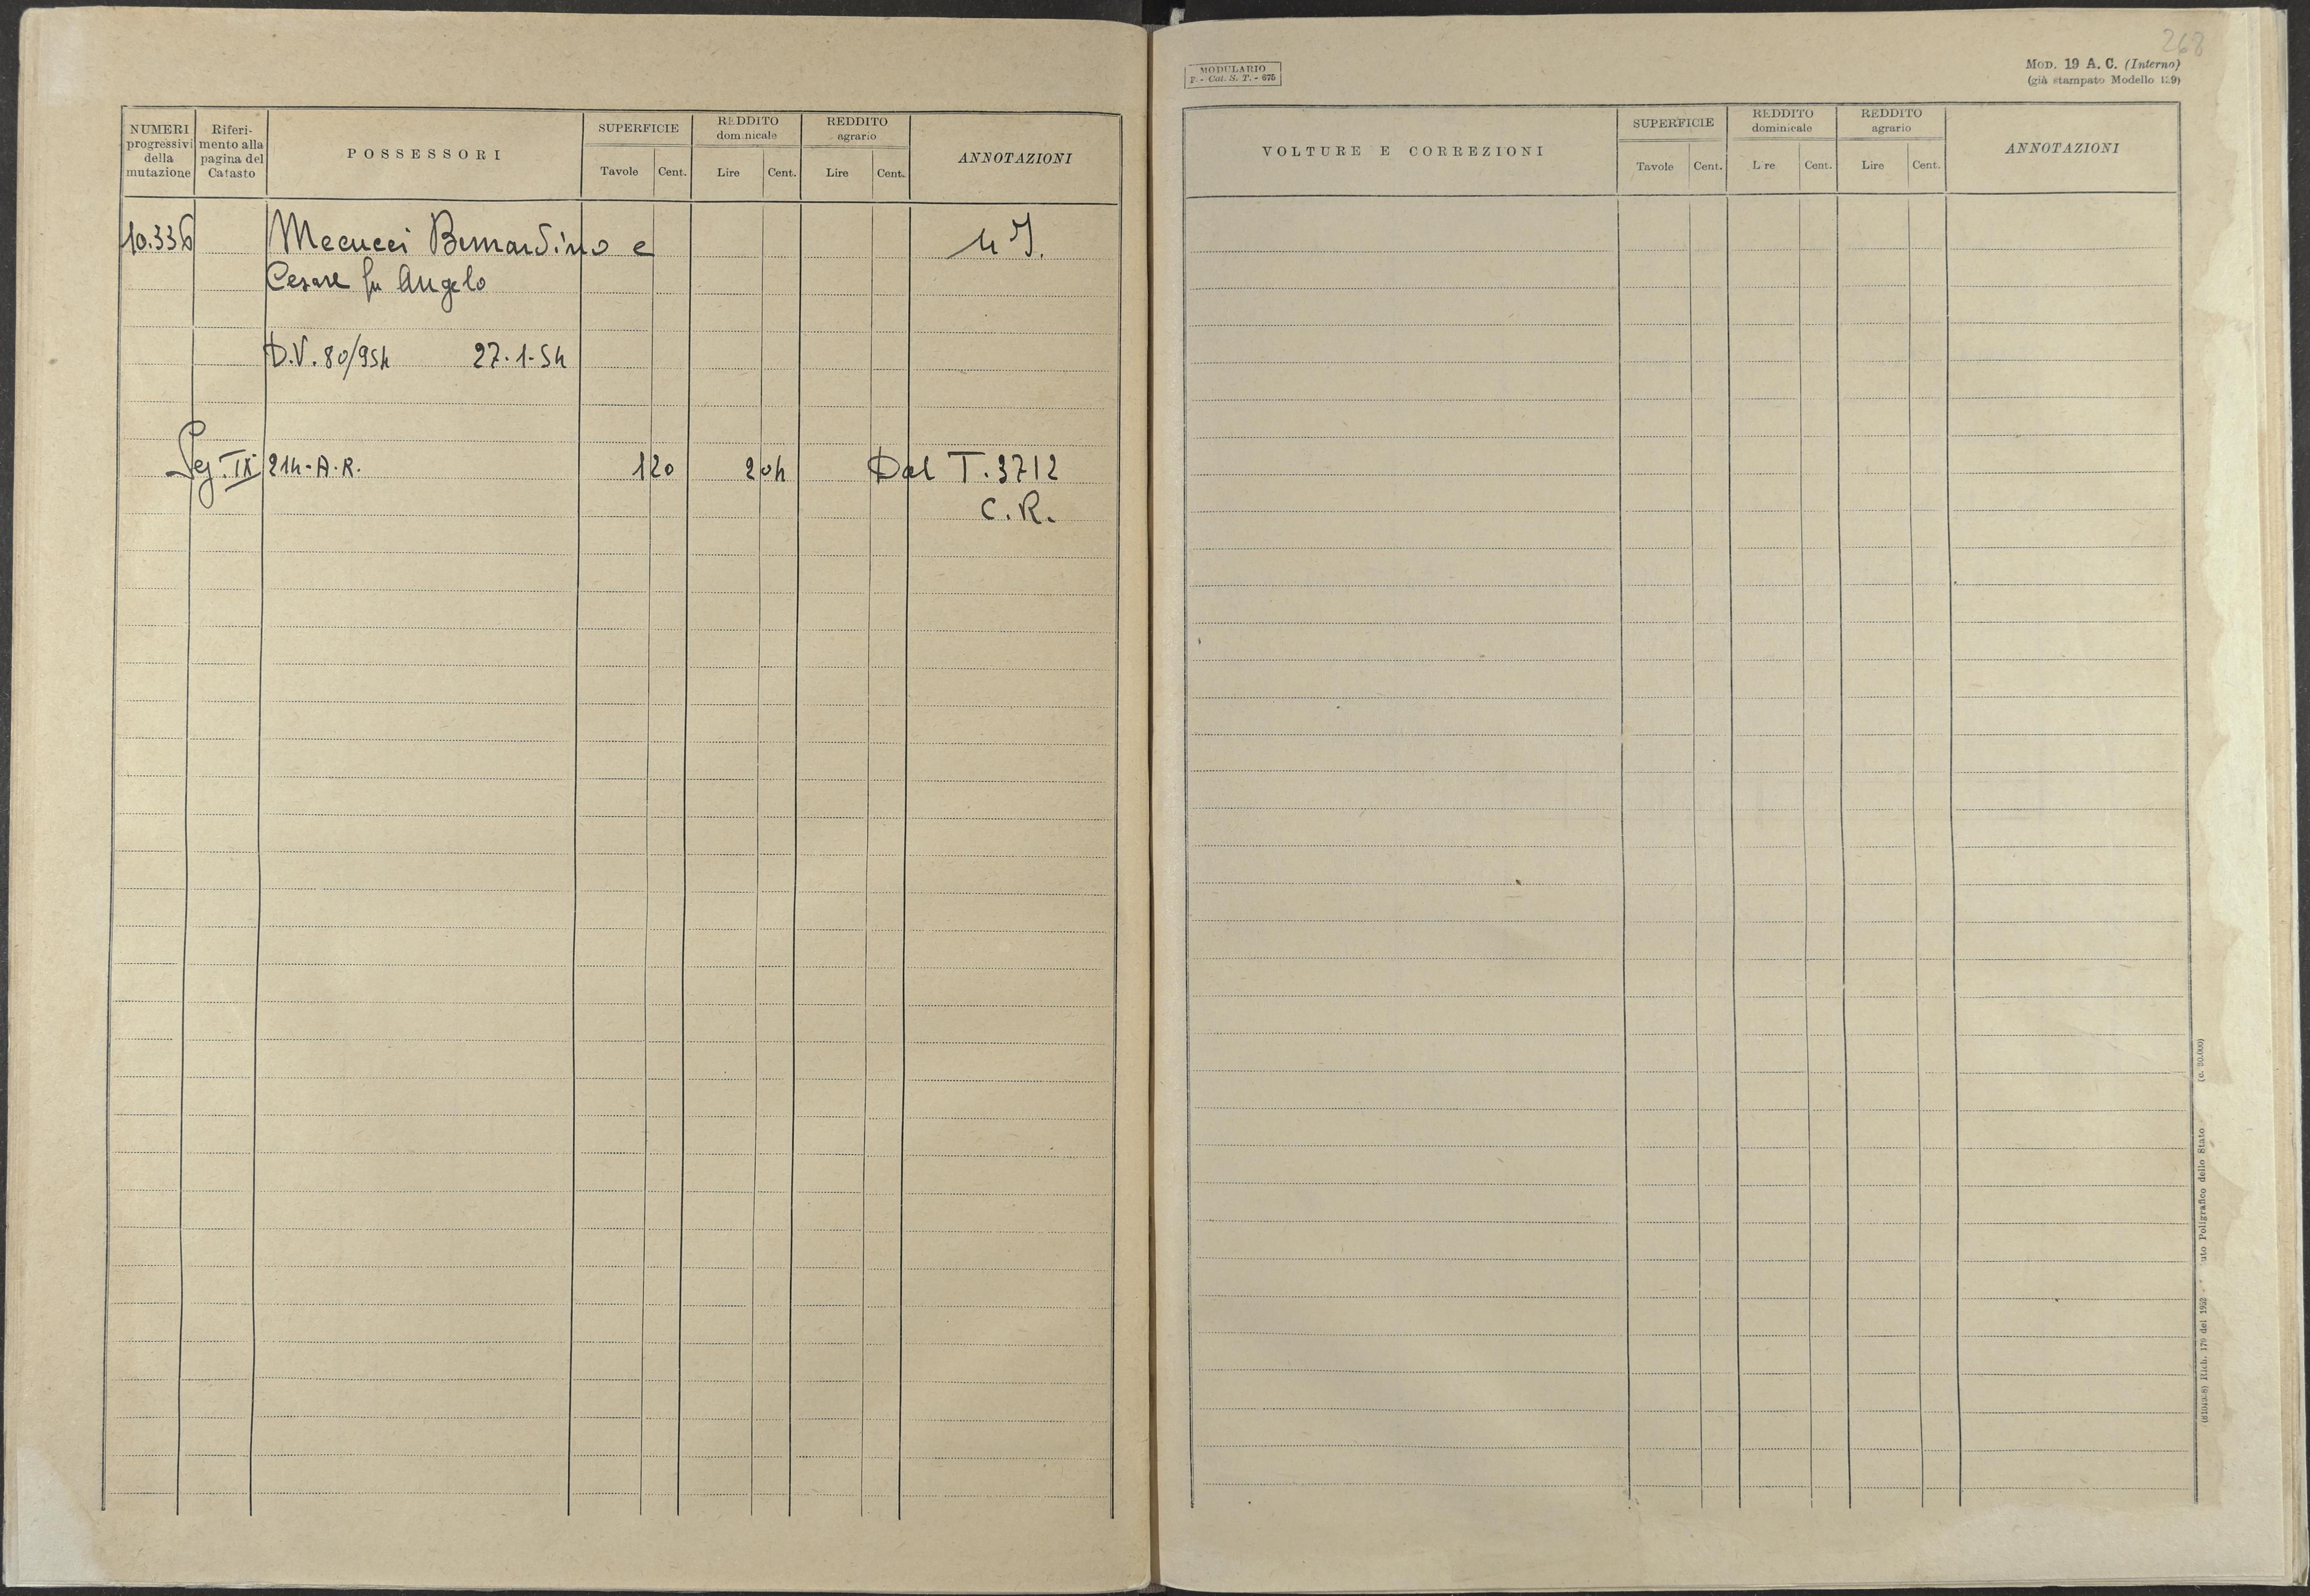 NUMERI progressivi della mutazione
Riferimento alla pagina del Catasto
POSSESSORI
SUPERFICIE
Tavole Cent.
REDDITO dominicale
Lire Cent.
REDDITO agrario
Lire Cent.
ANNOTAZIONI
10.336 Mecucci Bernardino e
Cesare fu Angelo
D.V. 80/954 27.1.54
Seg. IX 214-A.R. 1 20 2 04 Dal T. 3712
C.R.
268
MODULARIO
F. - Cat. S. T. - 675
MOD. 19 A. C. (Interno)
(già stampato Modello 129)
VOLTURE E CORREZIONI
SUPERFICIE
Tavole Cent.
REDDITO dominicale
L re Cent.
REDDITO agrario
Lire Cent.
ANNOTAZIONI
Rich. 170 del 1952 - uto Poligrafico dello Stato (c. 90.000)